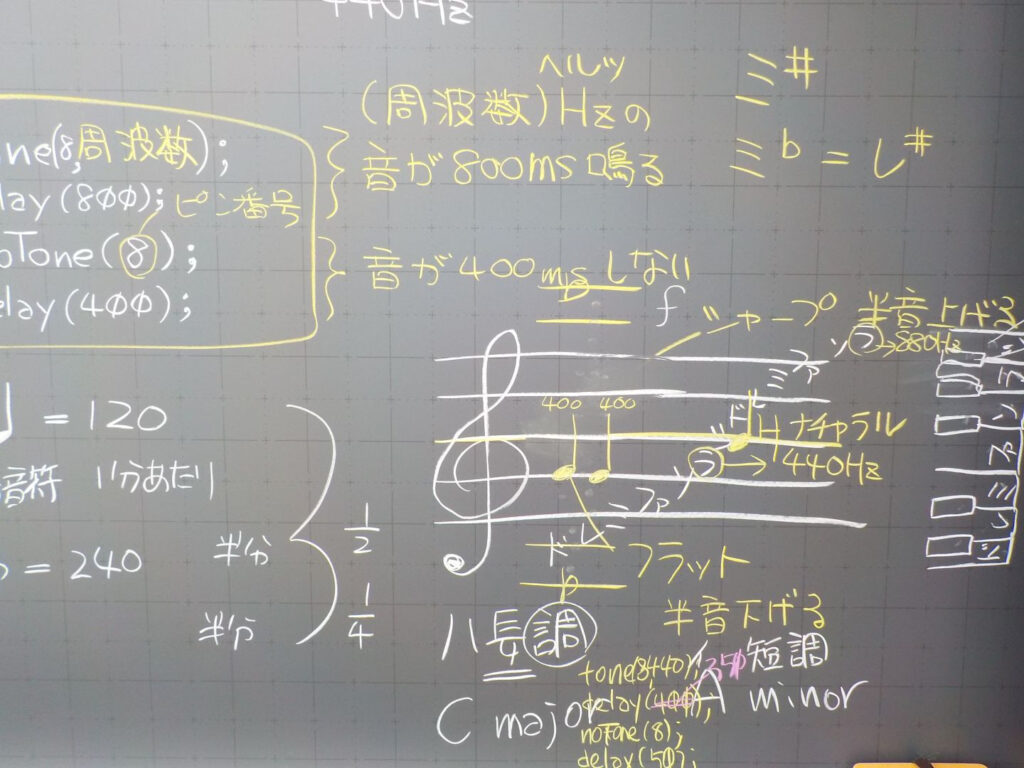 440Hz
ヘルツ
(周波数)Hzの
音が800ms鳴る
one(8,周波数);
lay(800);
ピン番号
oTone(8);
elay(400);
音が400ms しない
ミ#
ミb = レ#
シャープ
半音上げる
ソ ラ→880Hz
ミ ファ
400 400
ド
ナチャラル
ソ ラ→440Hz
ド レ ミ ファ
フラット
半音下げる
= 120
音符 1分あたり
= 240
半分 1/2
半分 1/4
ハ長調
短調
C major
A minor
tone(8,440);
delay(400);
350
noTone(8);
delay(50);